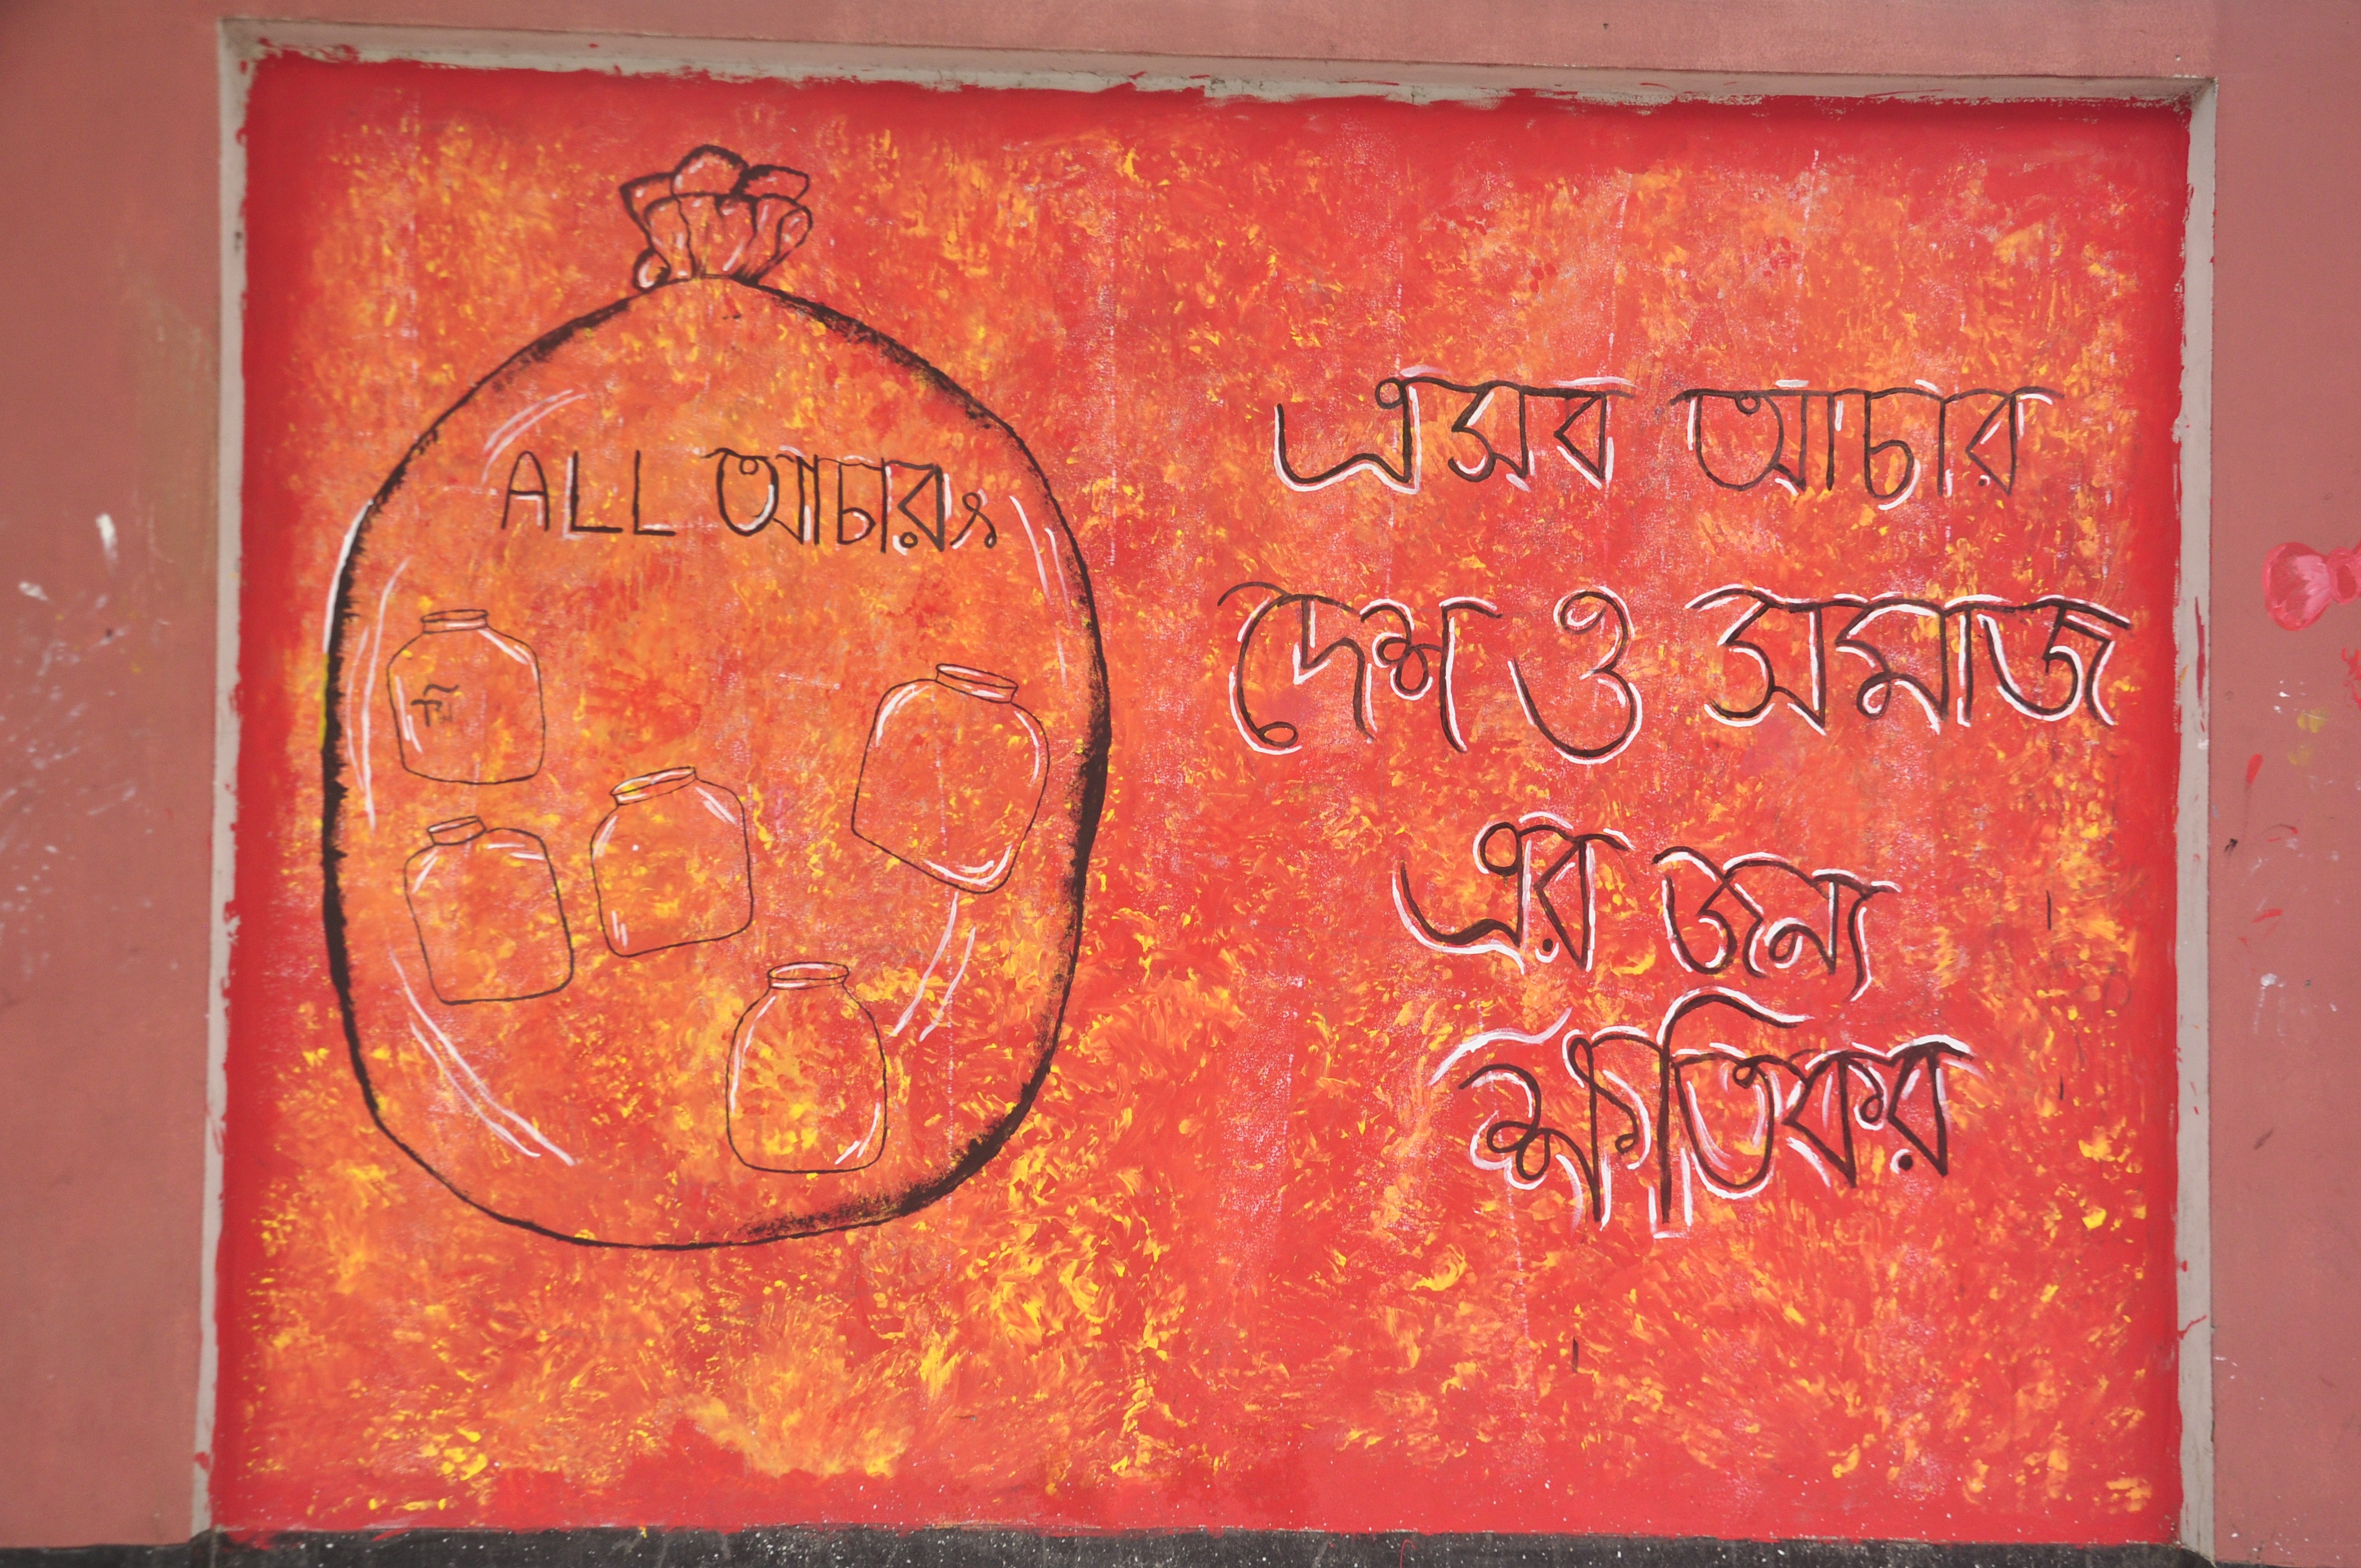 ALL আচারৎ
এসব আচার
দেশ ও সমাজ
এর জন্য
ক্ষতিকর